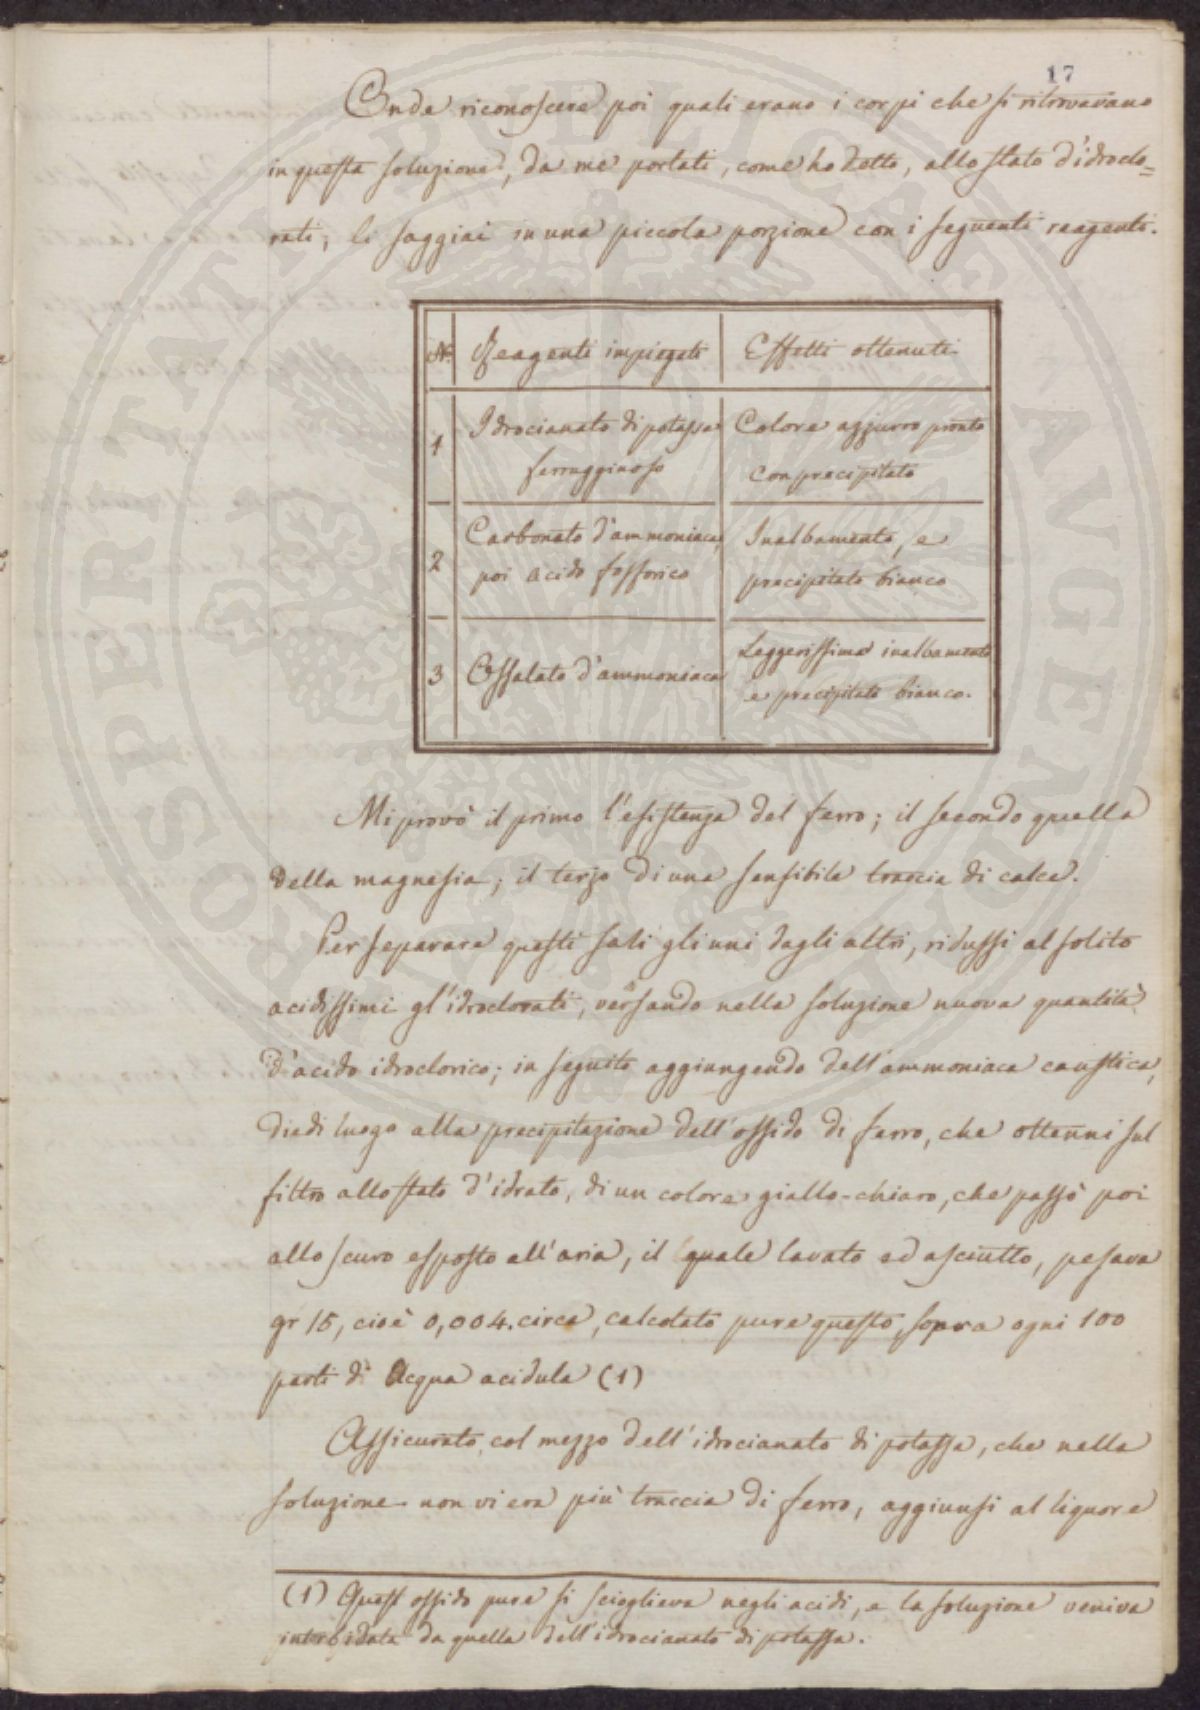 17
Onde riconoscere poi quali erano i corpi che si ritrovavano
in questa soluzione, da me portati, come ho detto, allo stato d'idroclo=
rati, li saggiai in una piccola porzione con i seguenti reagenti.
N.° Reagenti impiegati Effetti ottenuti
1 Idrocianato di potassa ferrugginoso Colore azzurro pronto con precipitato
2 Carbonato d'ammoniaca, poi acido fosforico Inalbamento, e precipitato bianco
3 Ossalato d'ammoniaca Leggerissimo inalbamento e precipitato bianco.
Mi provò il primo l'esistenza del ferro; il secondo quella
della magnesia; il terzo di una sensibile traccia di calce.
Per separare questi sali gli uni dagli altri, ridussi al solito
acidissimi gl'idroclorati, versando nella soluzione nuova quantità
d'acido idroclorico; in seguito aggiungendo dell'ammoniaca caustica,
diedi luogo alla precipitazione dell'ossido di ferro, che ottenni sul
filtro allo stato d'idrato, di un colore giallo-chiaro, che passò poi
allo scuro esposto all'aria, il quale lavato ed asciutto, pesava
gr 15, cioè 0,004. circa, calcolato pure questo, sopra ogni 100
parti di Acqua acidula (1)
Assicurato, col mezzo dell'idrocianato di potassa, che nella
soluzione non vi era più traccia di ferro, aggiunsi al liquore
(1) Quest ossido pure si scioglieva negli acidi, e la soluzione veniva
intorbidata da quella dell'idrocianato di potassa.
PROSPERITATI PVBLICAE AVGENDAE